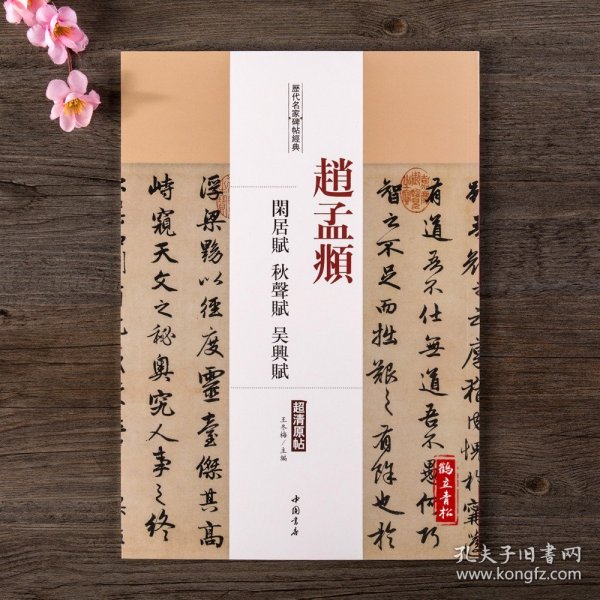 歷代名家碑帖經典
趙孟頫
閑居賦 秋聲賦 吴興賦
超清原帖
王冬梅／主編
中國書店
有道吾不仕無道吾不愚何巧
智之不足而拙艱之有餘也於
浮梁黝以徑度靈臺傑其高
峙窺天文之秘奧究人事之終
鶴立青松
孔夫子旧書网
www.kongfz.com